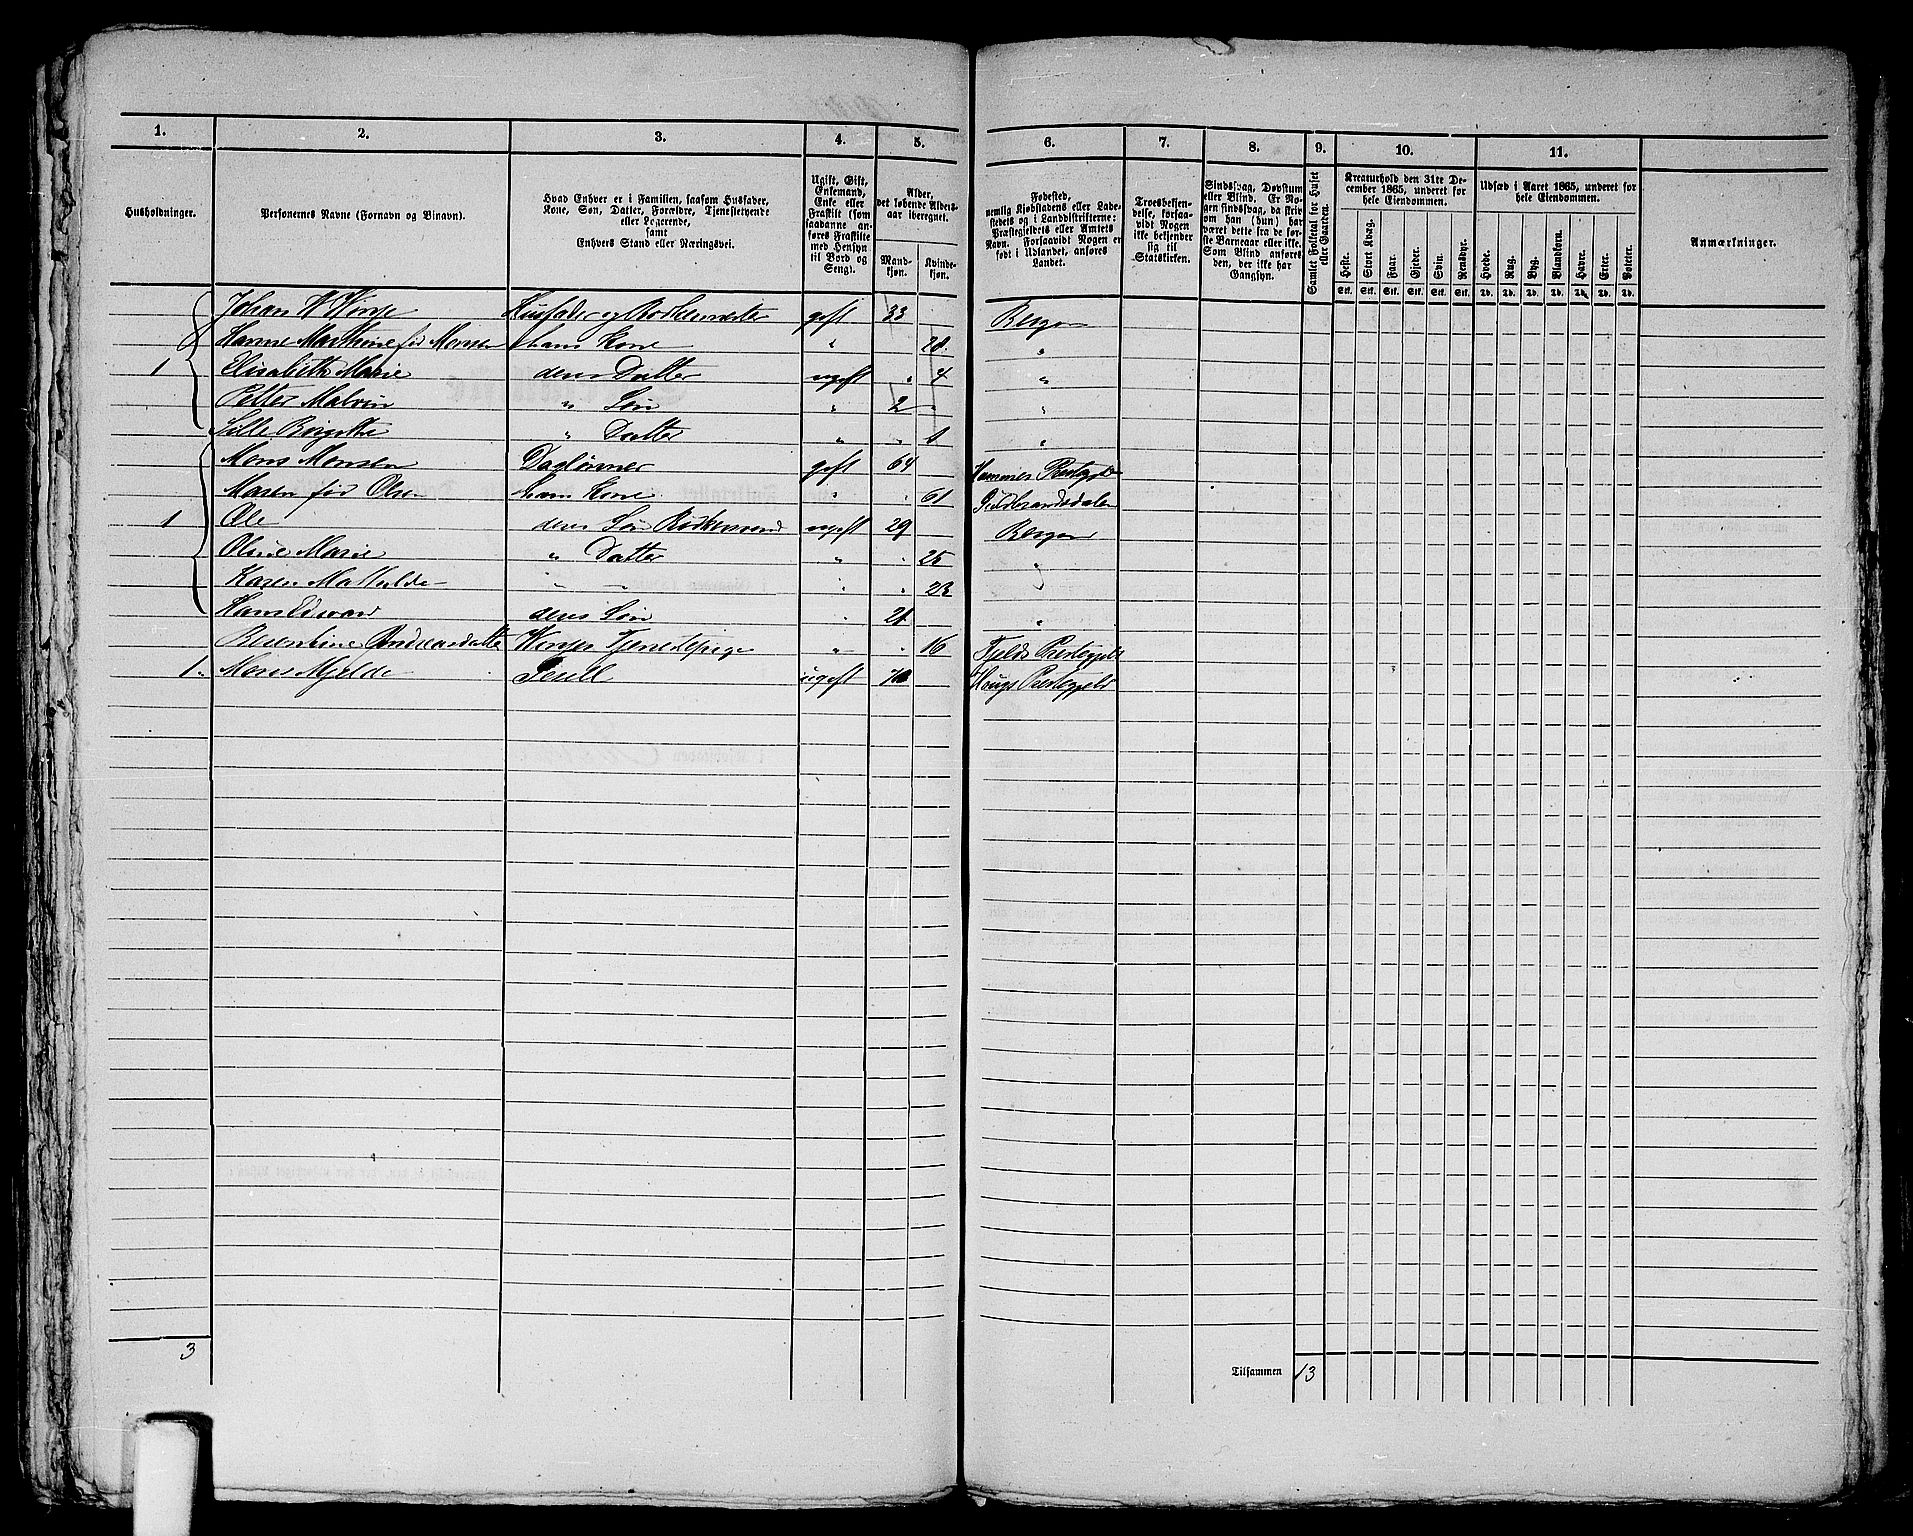 1. 2. 3. 4. 5. 6. 7. 8. 9. 10. 11.
Husholdninger.
Personernes Navne (Fornavn og Binavn).
Hvad Enhver er i Familien, saasom Husfader,
Kone, Søn, Datter, Forældre, Tjenestetyende
eller Logerende,
samt
Enhvers Stand eller Næringsvei.
Ugift, Gift,
Enkemand,
Enke eller
Fraskilt (som
saadanne an-
føres Fraskilte
med Hensyn
til Bord og
Seng).
Alder,
det løbende Alders-
aar iberegnet.
Mand-
kjøn.
Kvinde-
kjøn.
Fødested,
nemlig Kjøbstadens eller Lade-
stedets og i Landdistrikterne:
Præstegjeldets eller Amtets
Navn. Forsaavidt Nogen er
født i Udlandet, anføres
Landet.
Troesbekjen-
delse, forsaa-
vidt Nogen
ikke bekjender
sig til
Statskirken.
Sindssvag, Døvstum
eller Blind. Er No-
gen sindssvag, da skriv
om han (hun) har
været dette fra de før-
ste Barneaar eller ikke.
Som Blind anføres
den, der ikke har
Gangsyn.
Samlet Folketal for Huset
eller Gaarden.
Kreaturhold den 31te De-
cember 1865, underet for
hele Eiendommen.
Heste. Stort Kvæg. Faar. Gjeder. Svin. Rensdyr.
Stk. Stk. Stk. Stk. Stk. Stk.
Udsæd i Aaret 1865, underet for
hele Eiendommen.
Hvede. Rug. Byg. Blandkorn. Havre. Erter. Poteter.
Td. Td. Td. Td. Td. Td. Td.
Anmærkninger.
Johan Husfader og gift 33 Bergen
Hanne Marthine fød Monsen hans Kone " 28. "
1 Elisabeth Marie deres Datter ugift " 4 "
Petter Malvin " Søn " 2 " "
Sille Birgitte " Datter " " 1 "
Mons Monsen Daglønner gift 64 Hammer Prestegjeld
Maren fød Olsen hans Kone " " 61 Guldbrandsdalen
1 Ole deres Søn ugift 29 Bergen
Oline Marie " Datter " " 25 "
Karen Mathilde " " " " 23 "
Hans Edvard deres Søn " 21 "
Andreasdatter Tjenestepige " " 16 Fjelds Prestegjeld
1. Mons Mjelde ugift Hougs Prestegjeld
3
Tilsammen 13